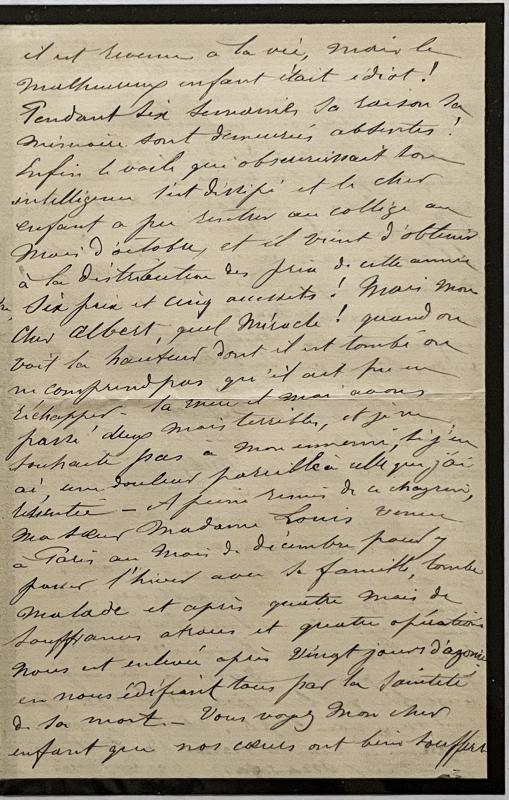 il est revenu à la vie, mais le
malheureux enfant était idiot !
Pendant six semaines sa raison sa
mémoire sont demeurées absentes !
Enfin le voile qui obscurcissait son
intelligence s'est dissipé et le cher
enfant a pu rentrer au collège au
mois d'octobre, et il vient d'obtenir
à la distribution des prix de cette année
six prix et cinq accessits ! Mais mon
cher Albert, quel miracle ! quand on
voit la hauteur dont il est tombé on
ne comprend pas qu'il ait pu en
échapper - sa mère et moi avons
passé deux mois terribles, et je ne
souhaite pas à mon ennemi, si j'en
ai, une douleur pareille à celle que j'ai
ressentie - A peine remis de ce chagrin,
ma sœur Madame Louis venue
à Paris au mois de décembre pour y
passer l'hiver avec sa famille, tombe
malade et après quatre mois de
souffrances atroces et quatre opérations
nous est enlevée après vingt jours d'agonie
en nous édifiant tous par la sainteté
de sa mort - Vous voyez mon cher
enfant que nos cœurs ont bien souffert